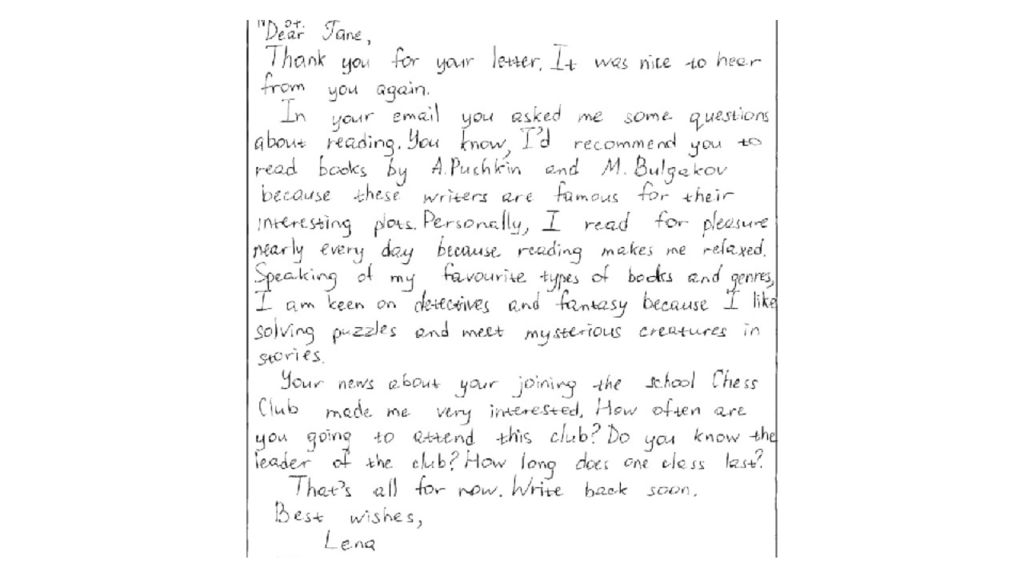 Dear Jane,
Thank you for your letter. It was nice to hear
from you again.
In your email you asked me some questions
about reading. You know, I'd recommend you to
read books by A.Puchkin and M. Bulgakov
because these writers are famous for their
interesting plots. Personally, I read for pleasure
nearly every day because reading makes me relaxed.
Speaking of my favourite types of books and genres,
I am keen on detectives and fantasy because I like
solving puzzles and meet mysterious creatures in
stories.
Your news about your joining the school Chess
Club made me very interested. How often are
you going to attend this club? Do you know the
leader of the club? How long does one class last?
That's all for now. Write back soon.
Best wishes,
Lena